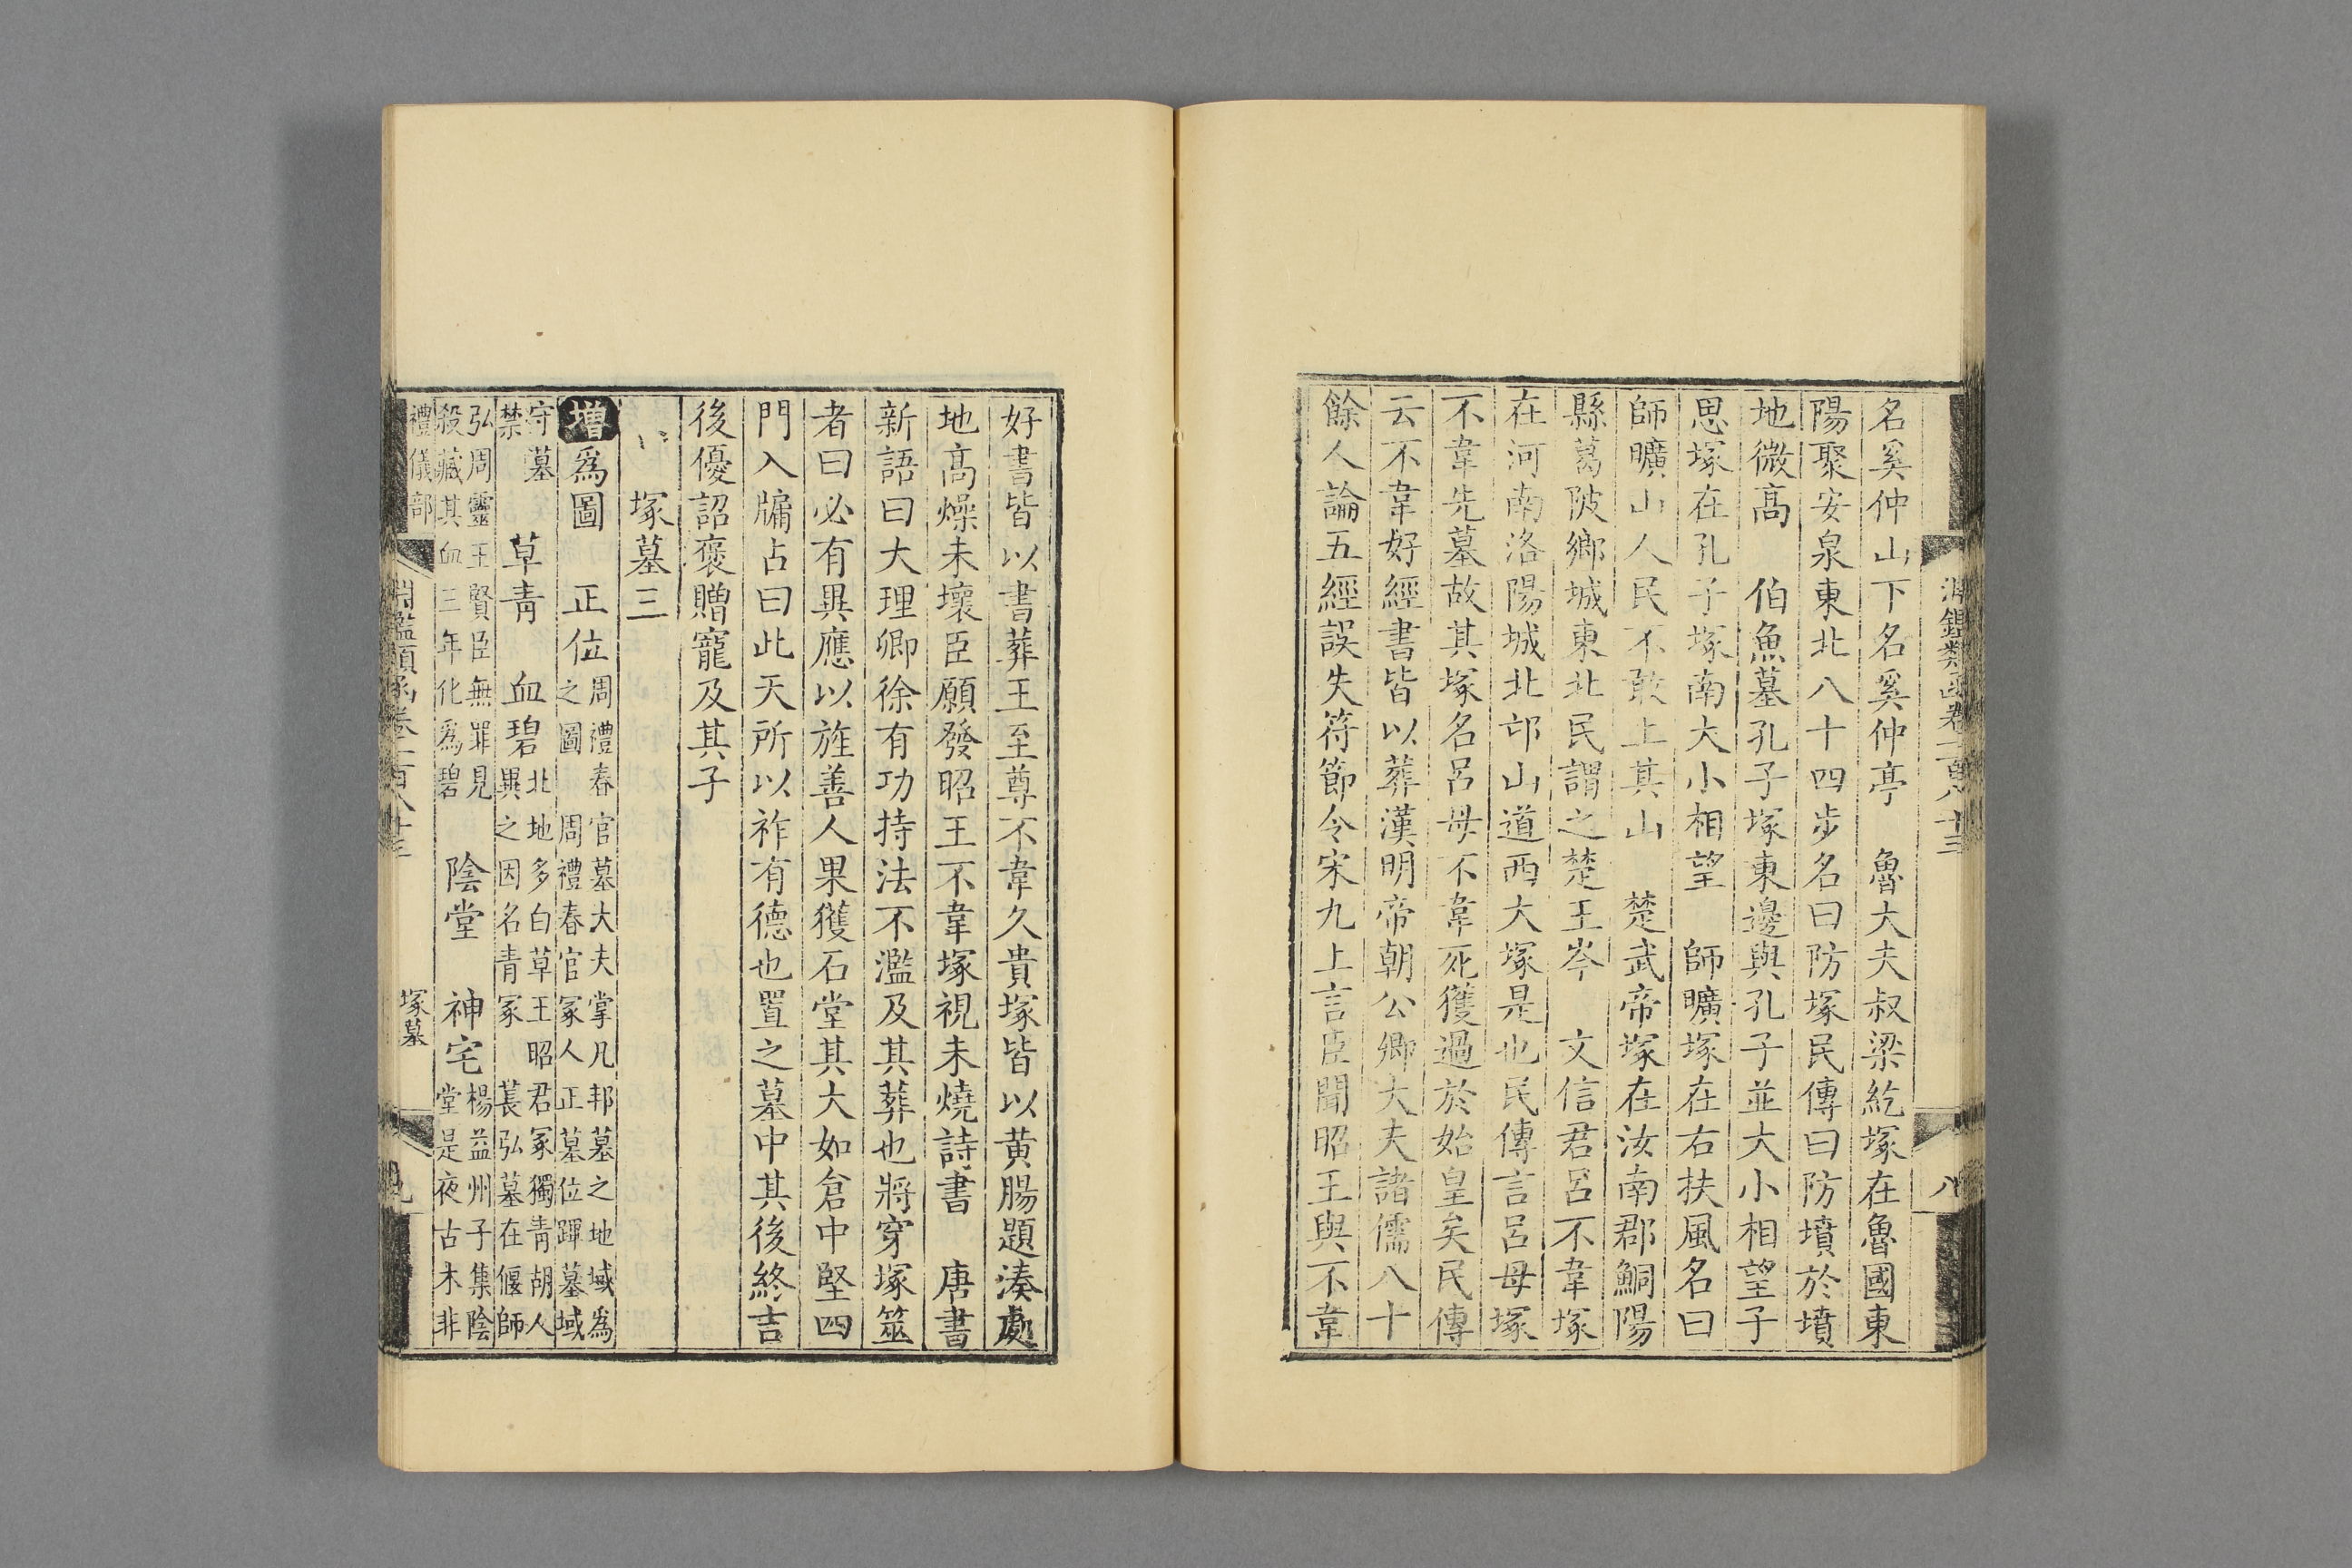 淵鑑類函卷一百八十三
八
名奚仲山下名奚仲亭　魯大夫叔梁紇塚在魯國東
陽聚安泉東北八十四步名曰防塚民傳曰防墳於墳
地微高　伯魚墓孔子塚東邊與孔子並大小相望子
思塚在孔子塚南大小相望　師曠塚在右扶風名曰
師曠山人民不敢上其山　楚武帝塚在汝南郡鮦陽
縣葛陂鄉城東北民謂之楚王岑　文信君呂不韋塚
在河南洛陽城北邙山道西大塚是也民傳言呂母塚
不韋先墓故其塚名呂母不韋死獲過於始皇矣民傳
云不韋好經書皆以葬漢明帝朝公卿大夫諸儒八十
餘人論五經誤失符節令宋九上言臣聞昭王與不韋
好書皆以書葬王至尊不韋久貴塚皆以黃腸題湊處
地高燥未壞臣願發昭王不韋塚視未燒詩書　唐書
新語曰大理卿徐有功持法不濫及其葬也將穿塚筮
者曰必有異應以旌善人果獲石堂其大如倉中堅四
門入牖占曰此天所以祚有德也置之墓中其後終吉
後優詔褒贈寵及其子
塚墓三
增為圖　正位周禮春官墓大夫掌凡邦墓之地域為
之圖　周禮春官冢人正墓位蹕墓域
守墓
禁　草青　血碧北地多白草王昭君冢獨青胡人
異之因名青冢　萇弘墓在偃師
弘周靈王賢臣無罪見
殺藏其血三年化為碧　陰堂　神宅楊益州子集陰
堂是夜古木非
禮儀部
淵鑑類函卷一百八十三
塚墓
九